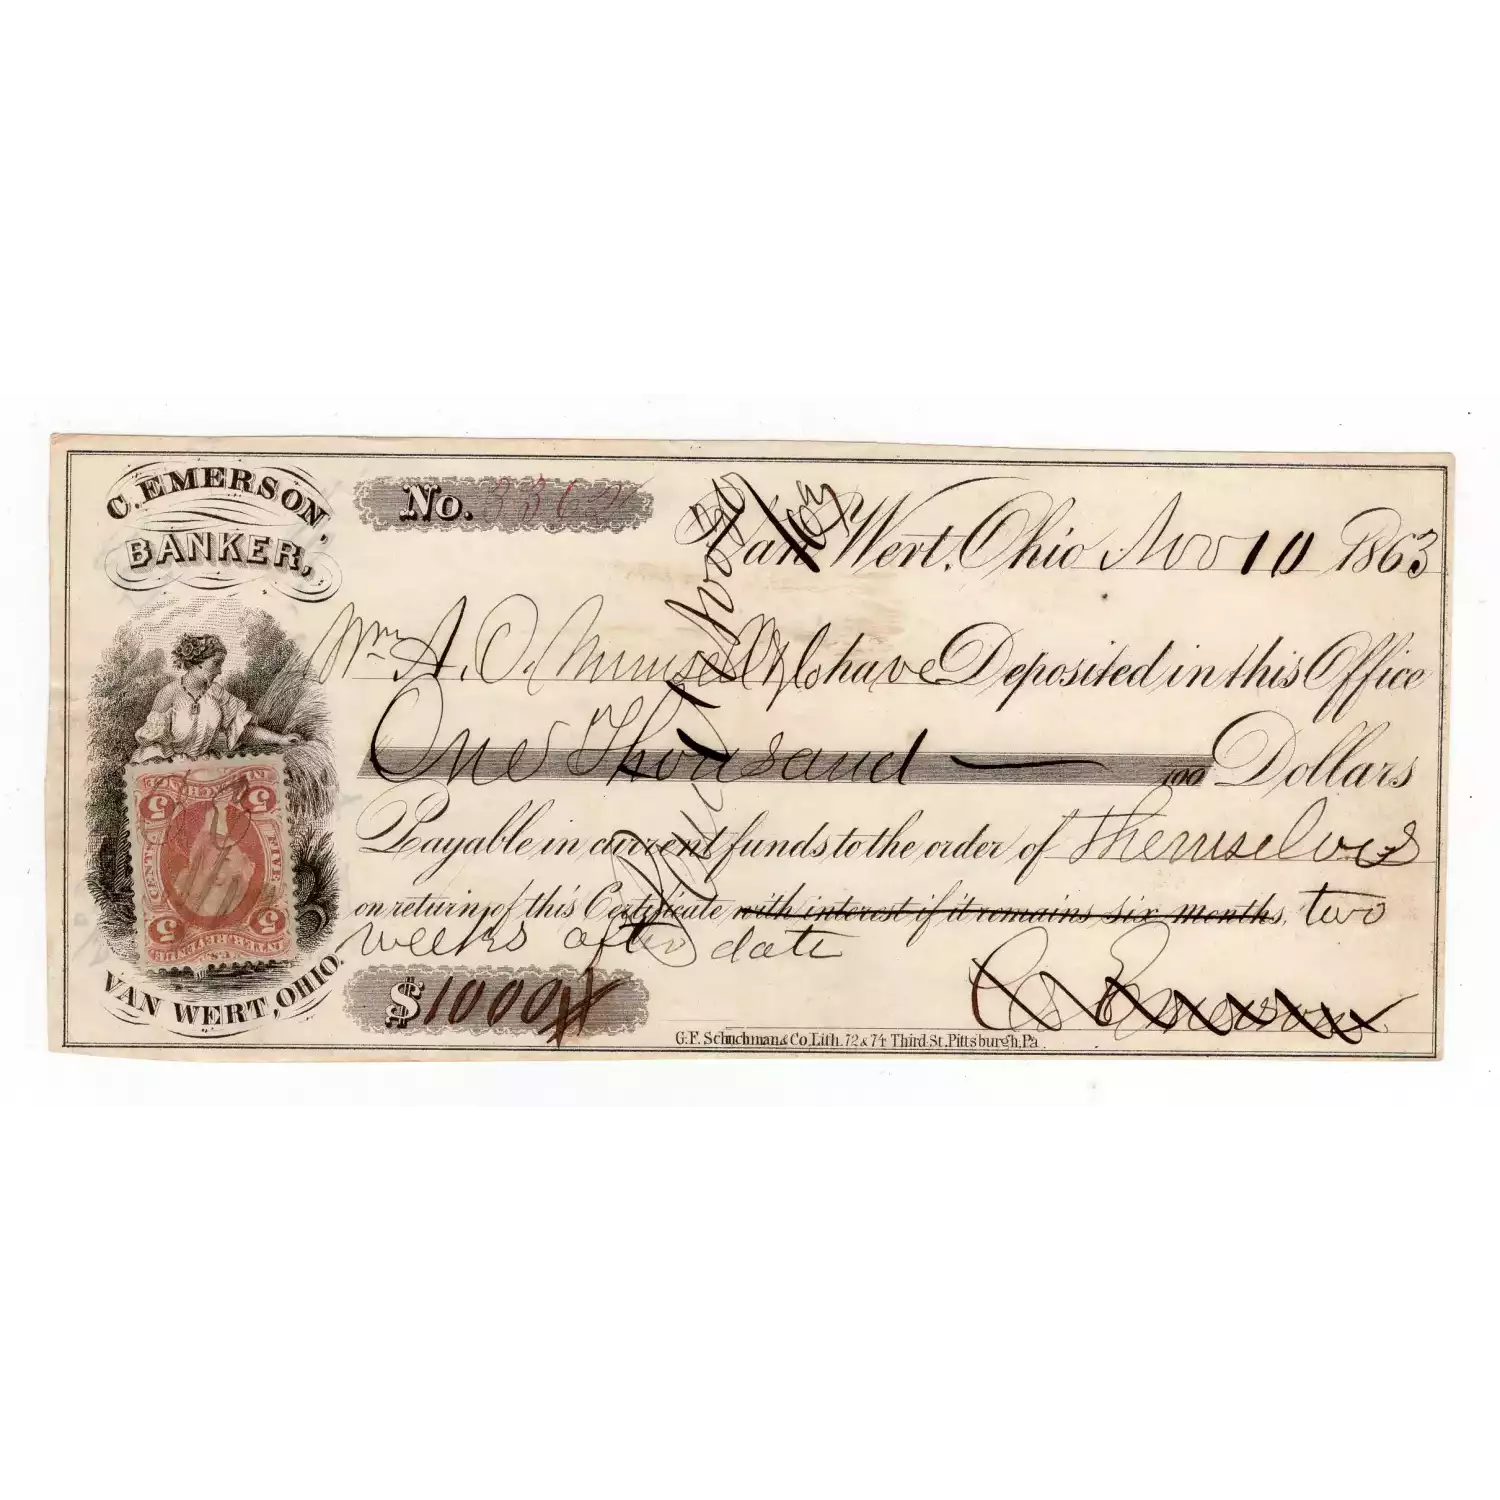 C. EMERSON,
BANKER,
No. 3362
Van Wert, Ohio Nov 10 1863
Wm A. O. Munsell & Co have Deposited in this Office
One Thousand — 100 Dollars
Payable in current funds, to the order of Themselves
on return of this Certificate with interest if it remains six months, two
weeks after date
$1000
C. Emerson
VAN WERT, OHIO.
G.F. Schuchman & Co, Lith. 72 & 74 Third St. Pittsburgh, Pa
5 5
FIVE CENTS
5 5
U.S. INTER. REVENUE